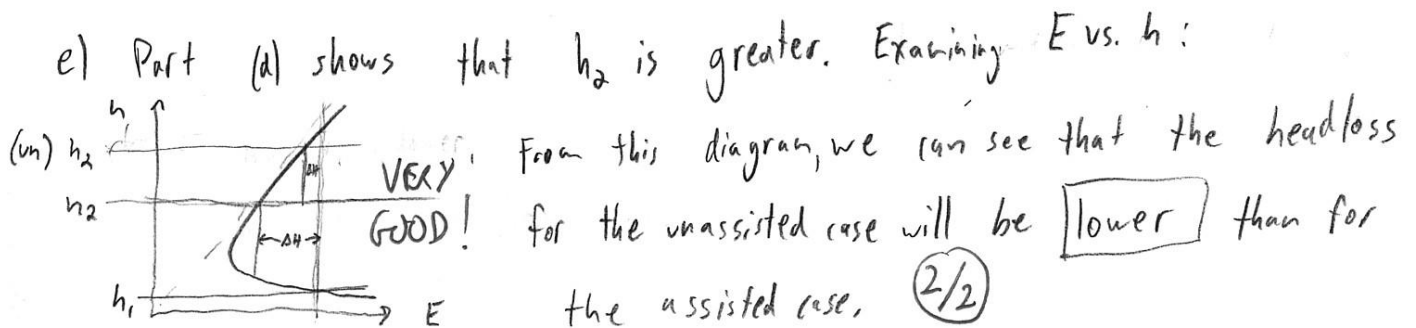 e) Part (d) shows that h₂ is greater. Examining E vs. h:
h
(un) h₂
h₂
h₁
E
ΔH
ΔH
VERY
GOOD!
From this diagram, we can see that the headloss
for the unassisted case will be lower than for
the assisted case.
2/2